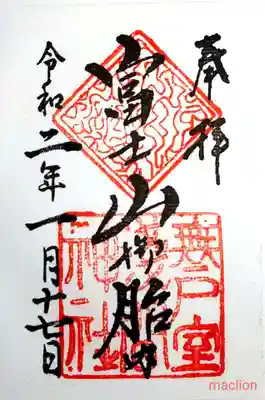 奉拝
富士山御胎内
無戸室
神社
令和二年一月十七日
maclion